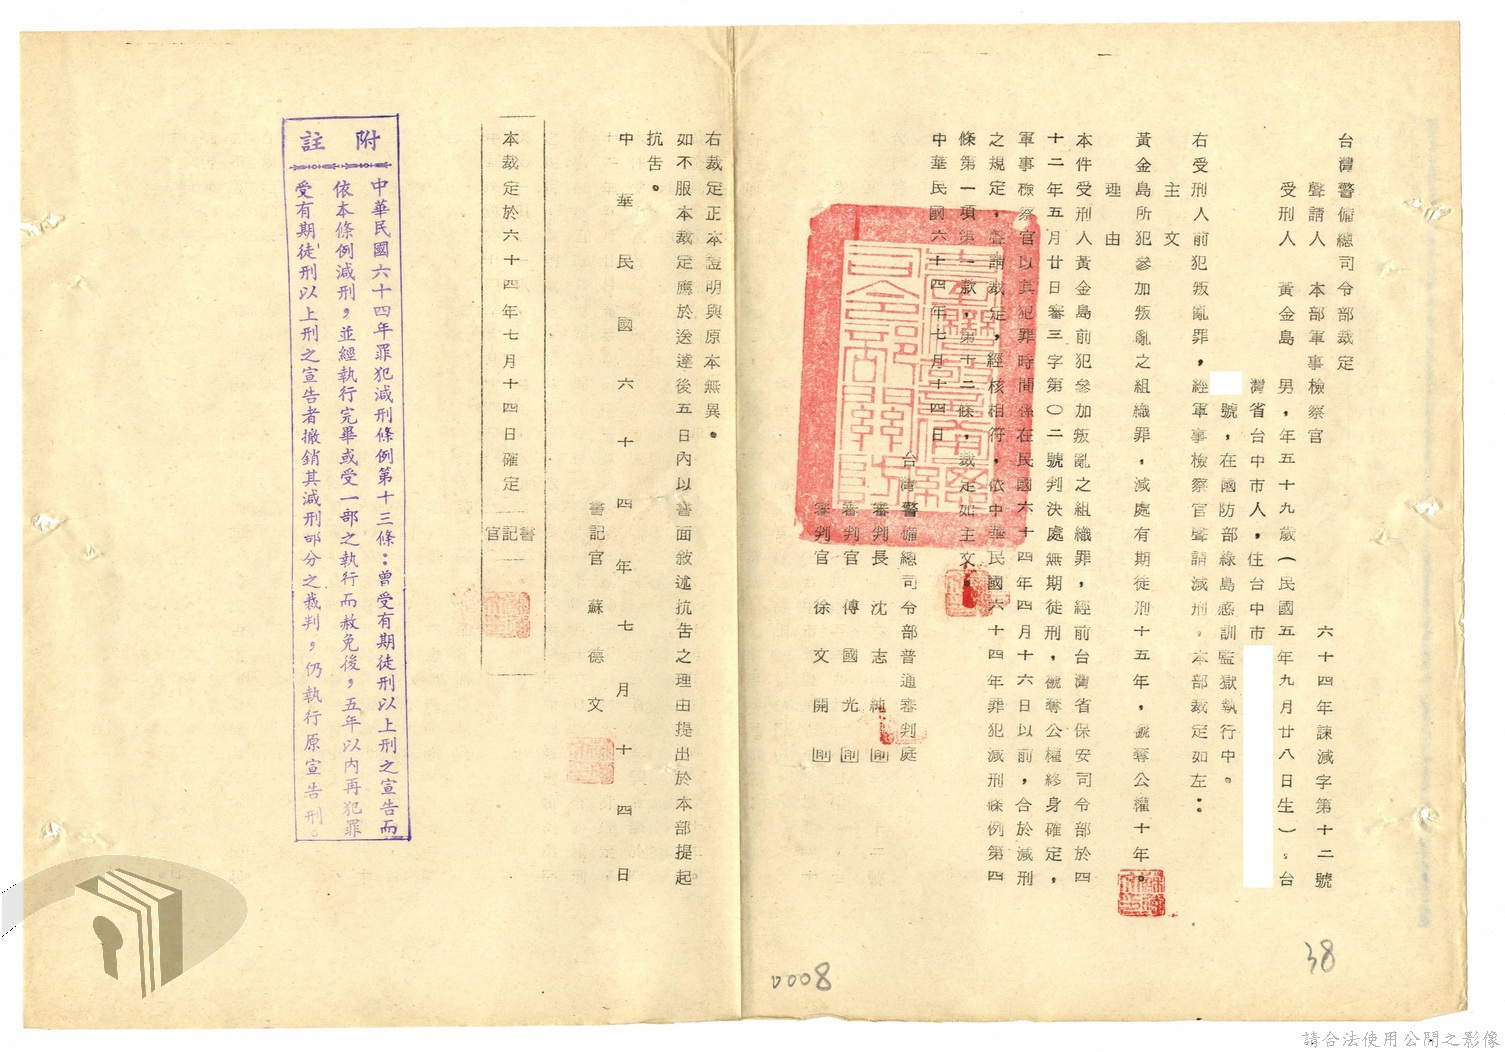 台灣警備總司令部裁定
六十四年諫減字第十二號
聲請人 本部軍事檢察官
受刑人 黃金島 男，年五十九歲（民國五年九月廿八日生），台
灣省台中市人，住台中市
號，在國防部綠島感訓監獄執行中。
右受刑人前犯叛亂罪，經軍事檢察官聲請減刑，本部裁定如左：
主文
黃金島所犯參加叛亂之組織罪，減處有期徒刑十五年，褫奪公權十年。
理由
本件受刑人黃金島前犯參加叛亂之組織罪，經前台灣省保安司令部於四
十二年五月廿日審三字第〇二號判決處無期徒刑，褫奪公權終身確定，
軍事檢察官以其犯罪時間係在民國六十四年四月十六日以前，合於減刑
之規定，聲請裁定，經核相符，依中華民國六十四年罪犯減刑條例第四
條第一項第一款，第十二條，裁定如主文。
中華民國六十四年七月十四日
台灣警備總司令部普通審判庭
審判長 沈志純 印
審判官 傅國光 印
審判官 徐文開 印
右裁定正本證明與原本無異。
如不服本裁定應於送達後五日內以書面敘述抗告之理由提出於本部提起
抗告。
中華民國六十四年七月十四日
書記官 蘇德文
本裁定於六十四年七月十四日確定
書記官
附註
中華民國六十四年罪犯減刑條例第十三條：曾受有期徒刑以上刑之宣告而
依本條例減刑，並經執行完畢或受一部之執行而赦免後，五年以內再犯罪
受有期徒刑以上刑之宣告者撤銷其減刑部分之裁判，仍執行原宣告刑。
0008
38
請合法使用公開之影像